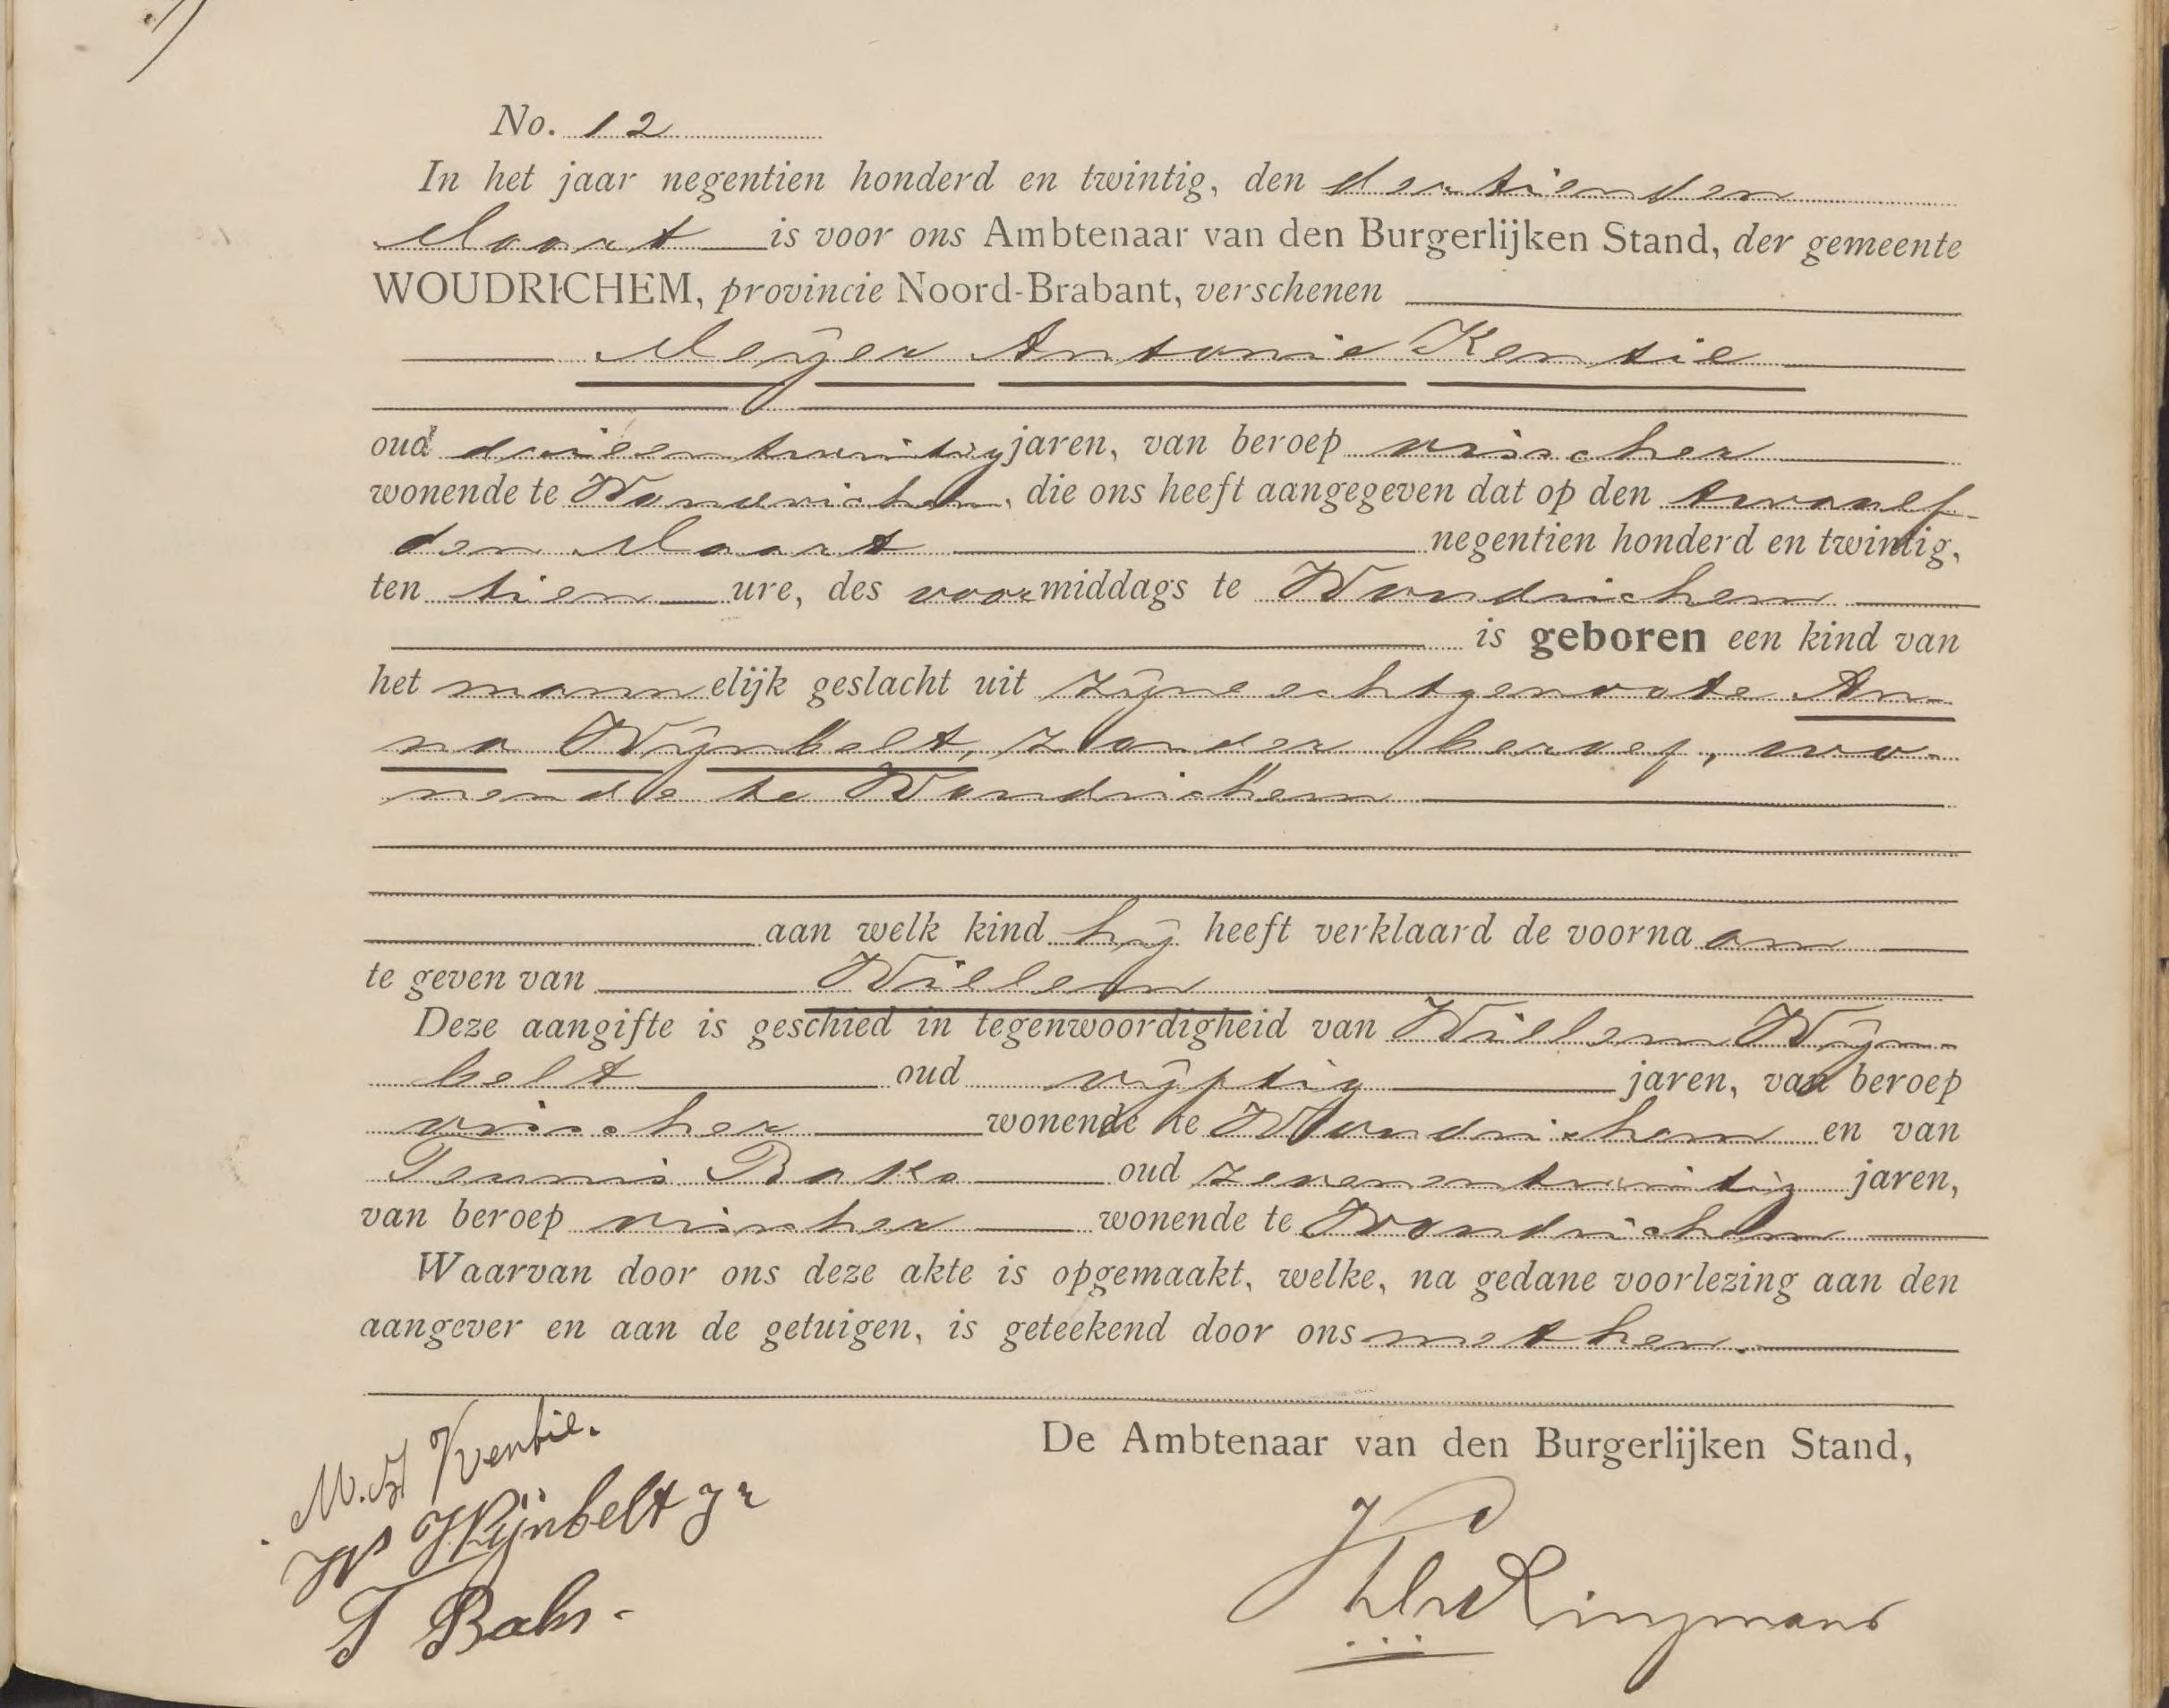 No. 12
In het jaar negentien honderd en twintig, den dertienden
Maart is voor ons Ambtenaar van den Burgerlijken Stand, der gemeente
WOUDRICHEM, provincie Noord-Brabant, verschenen
Meijer Antonie Kentie
oud drieëntwintig jaren, van beroep visscher
wonende te Woudrichem, die ons heeft aangegeven dat op den twaalf-
den Maart negentien honderd en twintig,
ten tien ure, des voormiddags te Woudrichem
is geboren een kind van
het mannelijk geslacht uit zijne echtgenoote An-
na Wijnbelt, zonder beroep, wo-
nende te Woudrichem
aan welk kind hij heeft verklaard de voornaam
te geven van Willem
Deze aangifte is geschied in tegenwoordigheid van Willem Wijn-
belt oud vijftig jaren, van beroep
visscher wonende te Woudrichem en van
Teunis Baks oud zevenentwintig jaren,
van beroep visscher wonende te Woudrichem
Waarvan door ons deze akte is opgemaakt, welke, na gedane voorlezing aan den
aangever en aan de getuigen, is geteekend door ons met hen.
De Ambtenaar van den Burgerlijken Stand,
M. A Kentie.
W Wijnbelt Jr
T Baks-